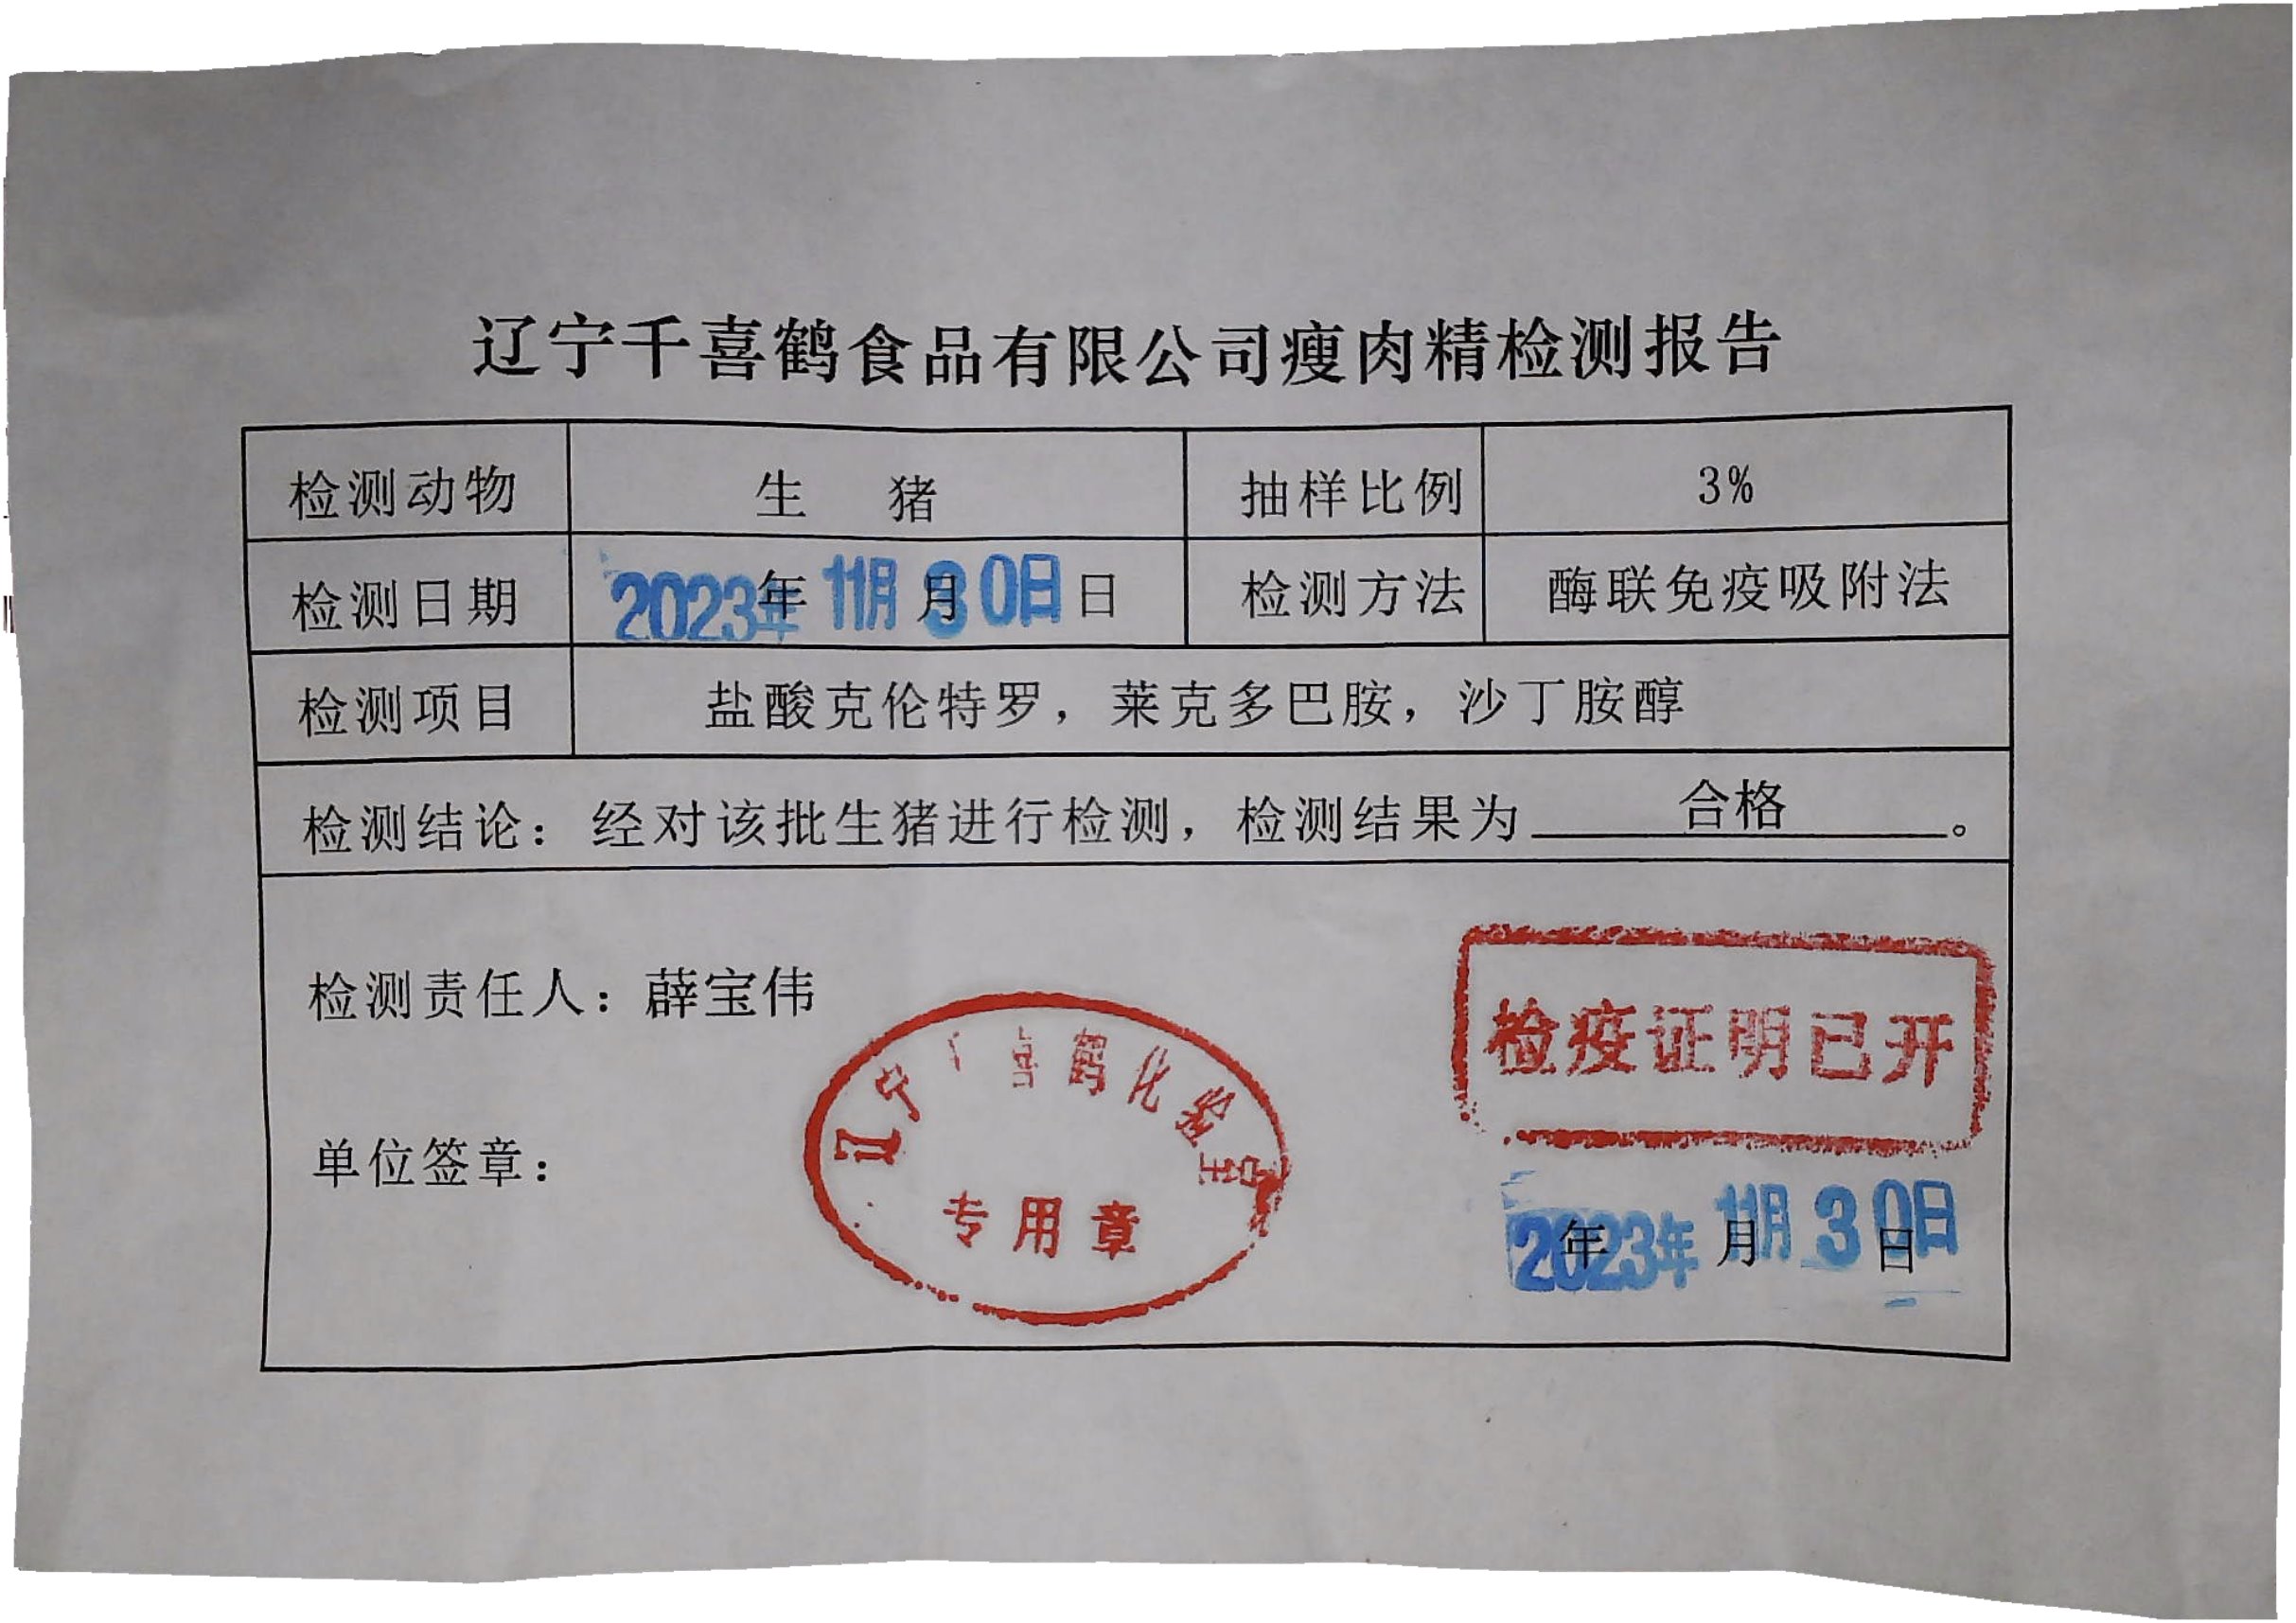 辽宁千喜鹤食品有限公司瘦肉精检测报告
检测动物 生 猪 抽样比例 3%
检测日期 2023年 年 11月 月 30日 日 检测方法 酶联免疫吸附法
检测项目 盐酸克伦特罗，莱克多巴胺，沙丁胺醇
检测结论：经对该批生猪进行检测，检测结果为 合格 。
检测责任人：薜宝伟
检疫证明已开
辽宁 喜鹤化验室
专用章
单位签章：
2023年 年 11月 月 30日 日